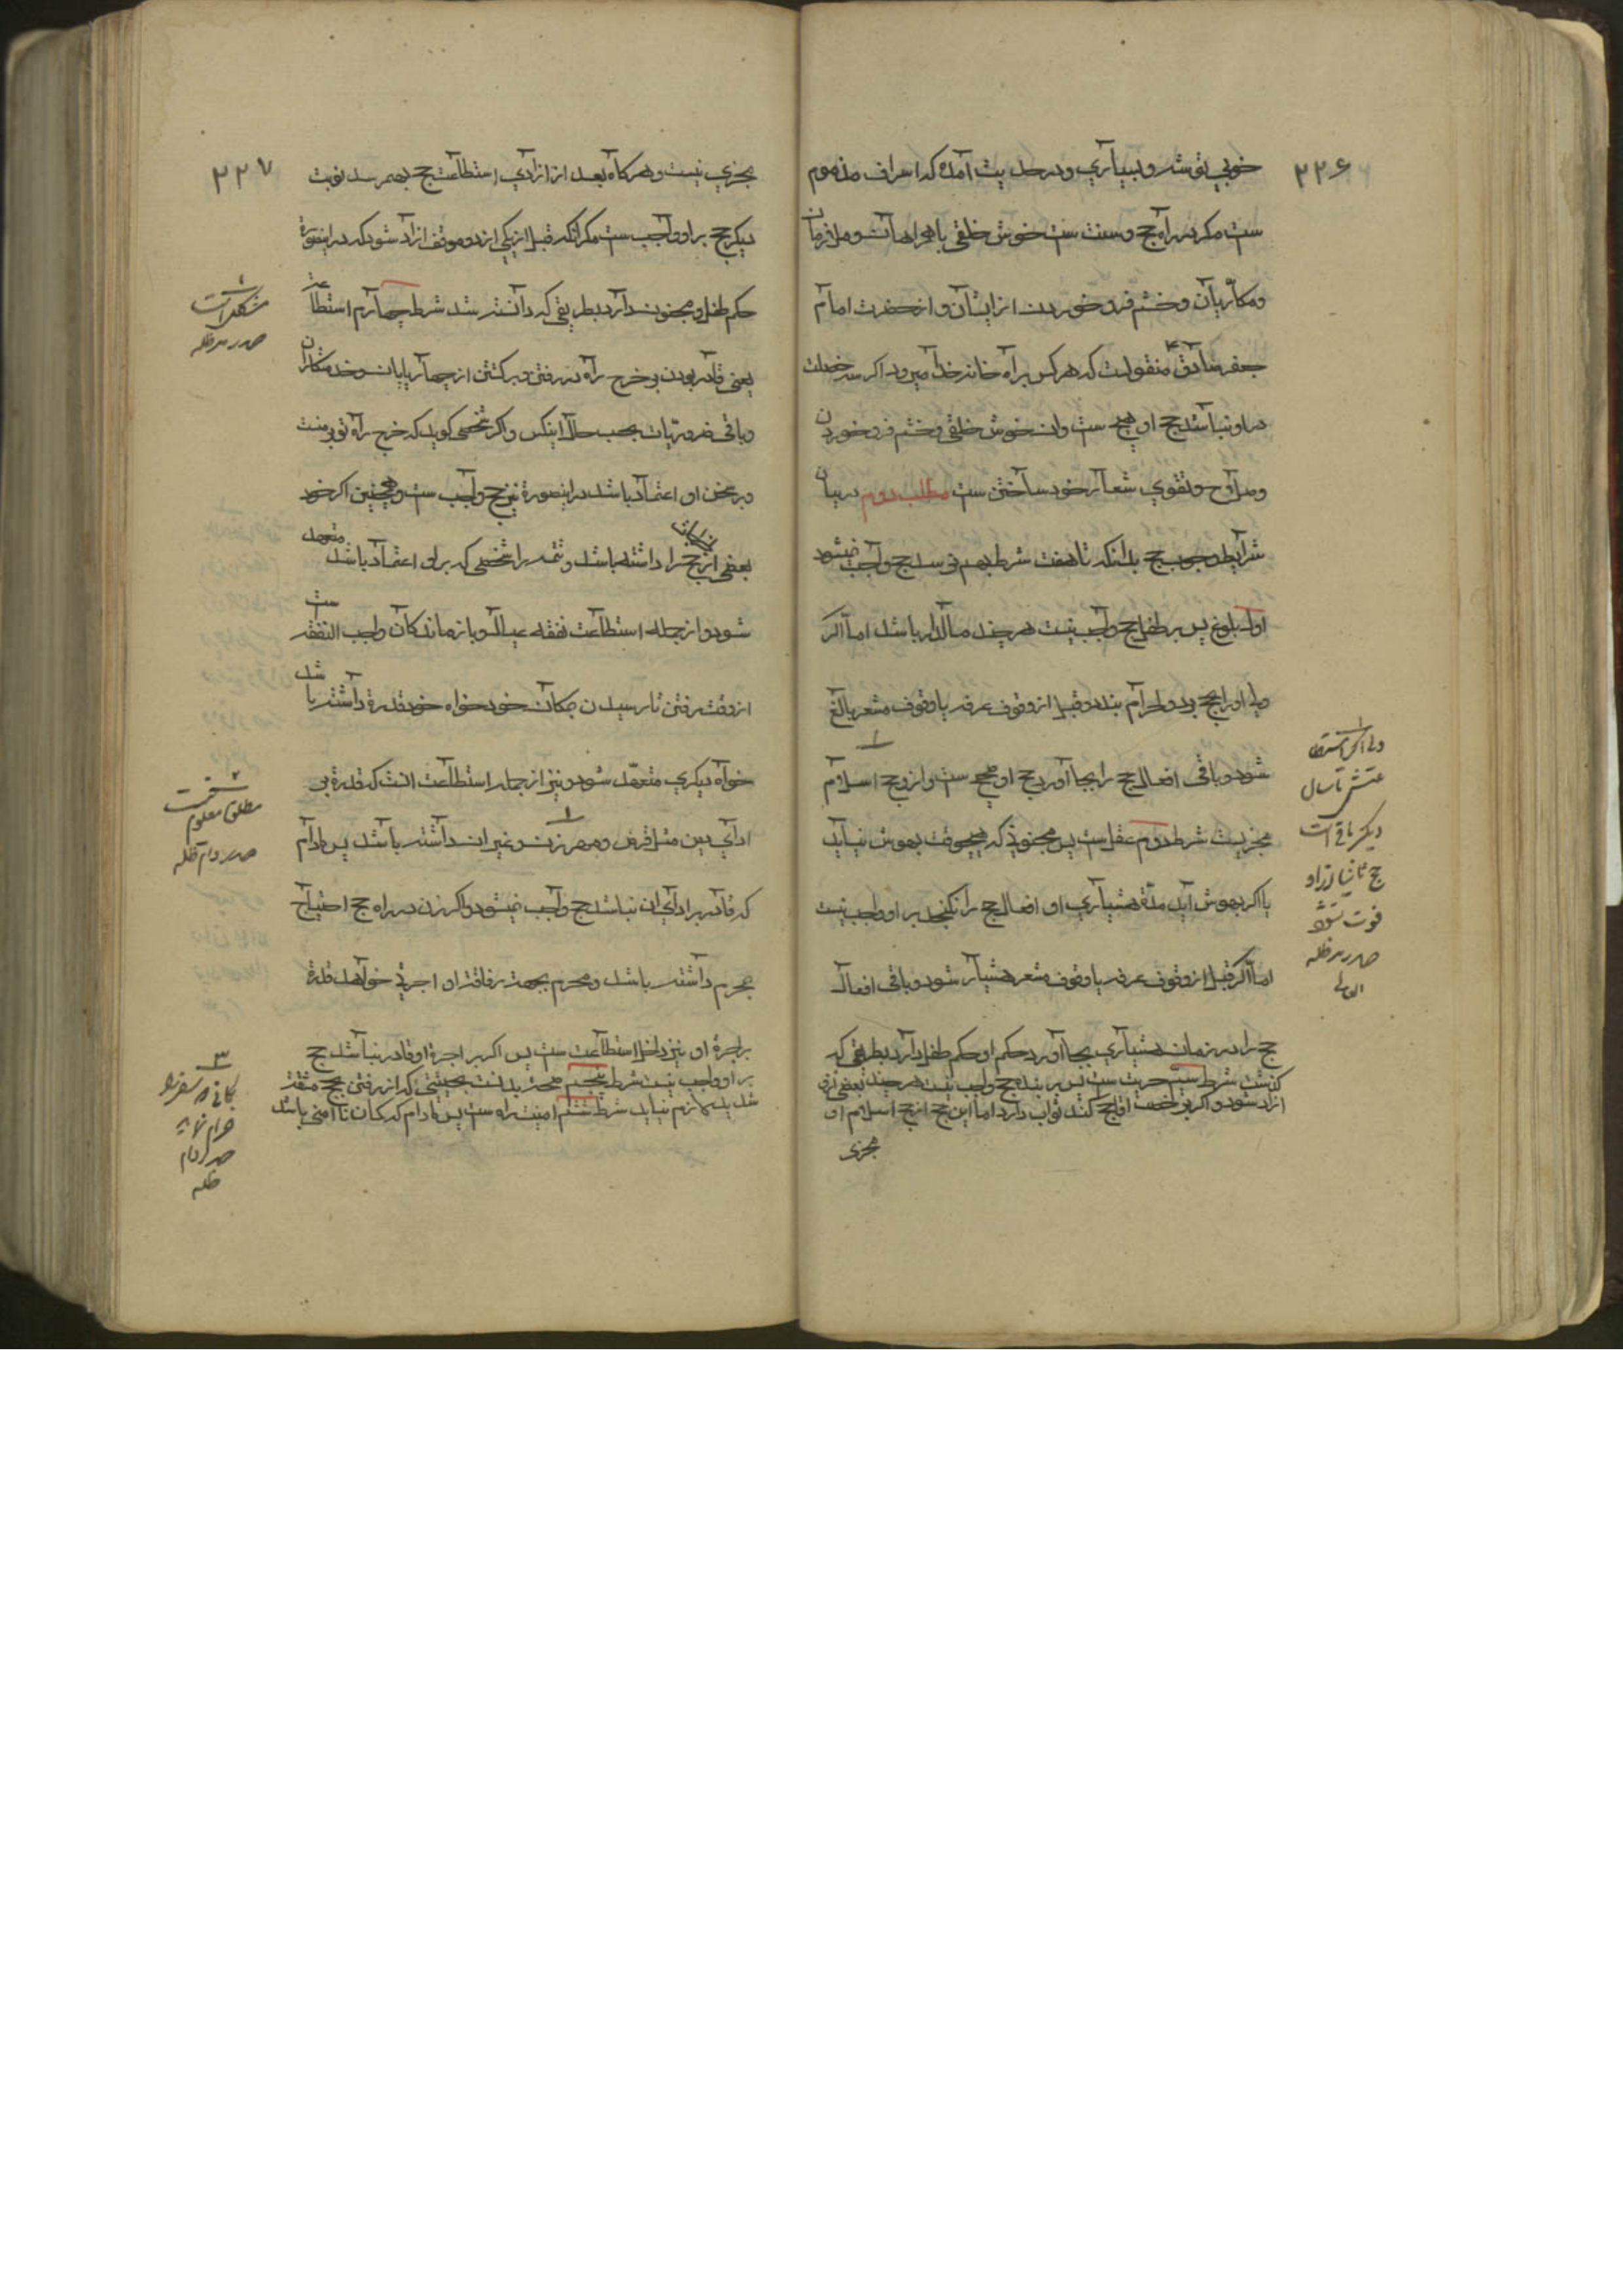 ۲۲۶
خوبی توشه و بسیاری و در حدیث آمده که اسراف مذموم
ست مکر در راه حج و سنت ست خوش خلقی با همراهان و ملازمان
و مکاریان و خشم فرو خوردن از ایشان و از حضرت امام
جعفر صادق ع منقولست که هر کس براه خانه خدا میرود اکر سه خصلت
در او نباشد حج او هیچ ست و ان خوش خلقی و خشم فرو خوردن
و صلاح و تقوی شعار خود ساختن ست مطلب دوم در بیان
شرایط وجوب حج بدانکه تا هفت شرط بهم نرسد حج واجب نمیشود
اول بلوغ پس بر طفل حج واجب نیست هر چند مالدار باشد اما اکر
ولی او را بحج برد و احرام بندد و قبل از وقوف عرفه یا وقوف مشعر بالغ
شود و باقی افعال حج را بجا آورد حج او صحیح ست و از وی حج اسلام
مجزیست شرط دوم عقل ست پس مجنونی که هیچوقت بهوش نیاید
یا اکر بهوش آید مدة هشیاری او افعال حج را نکنجد بر او واجب نیست
اما اکر قبل از وقوف عرفه یا وقوف مشعر هشیار شود و باقی افعال
حج را در زمان هشیاری بجا آورد حکم او حکم طفل دارد بطریقی که
کذشت شرط سیم حریت ست پس بر بنده حج واجب نیست هر چند بعضی ازو
ازاد شود و اکر برخصت اقا حج کند ثواب دارد اما این حج از حج اسلام او
مجزی
ولی اکر استطا
عتش تا سال
دیکر باقی است
حج ثانیا از او
فوت نشود
صدر مد ظله
العالی
۲۲۷
مجزی نیست و هر کاه بعد از ازادی استطاعت حج بهمرسد نوبت
دیکر حج بر او واجب ست مکر انکه قبل از یکی از دو موقف ازاد شود که در اینصورة
حکم طفل و مجنون دارد بطریقی که دانسته شد شرط چهارم استطاعت
یعنی قادر بودن بر خرج راه در رفتن و برکشتن از چهارپایان و خدمتکاران
و باقی ضروریات بحسب حال اینکس و اکر شخصی کوید که خرج راه تو بر منست
و بر سخن او اعتماد باشد در اینصورة نیز حج واجب ست و همچنین اکر خود
بعضی از خرج را داشته باشد و تتمه را شخصی که بر او اعتماد باشد متعهد
شود و از جمله استطاعت نفقه عیال و بازماندکان واجب النفقه ست
از وقت رفتن تا رسیدن بمکان خود خواه خود قدرة داشته باشد
خواه دیکری متعهد شود و نیز از جمله استطاعت انست که قدرة بر
ادای دین مثل قرض و مهر زن و غیر ان داشته باشد پس مادام
که قادر بر ادای ان نباشد حج واجب نمیشود و اکر زن در راه حج احتیاج
بمحرم داشته باشد و محرم بجهة رفاقت او اجرتی خواهد قدرة
بر اجرة او نیز داخل استطاعت ست پس اکر بر اجرة او قادر نباشد حج
بر او واجب نیست شرط پنجم صحت بدنست بحیثیتی که از رفتن بحج مشقت
شدید لازم نیاید شرط ششم امنیت راه ست پس مادام که کمان ناامنی باشد
مشکل است
صدر مد ظله
مطلق معلوم نیست
صدر دام ظله
صدر دام
ظله